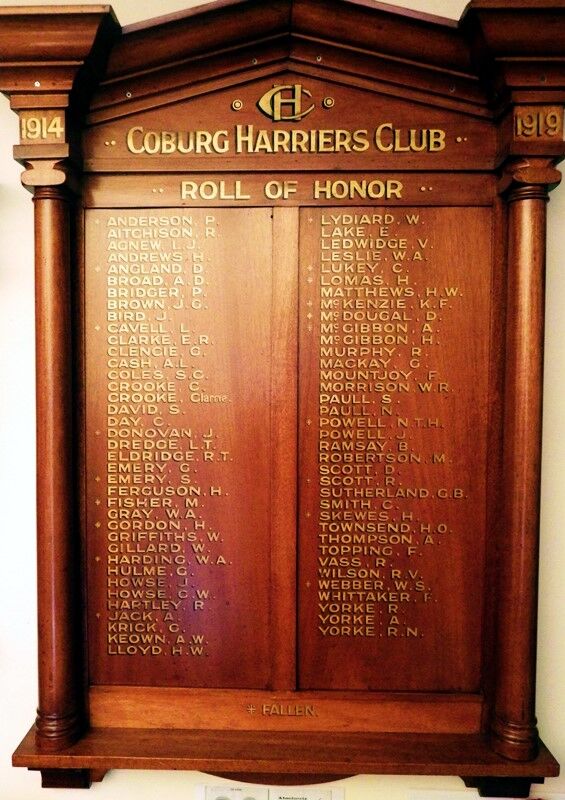 HC
1914
1919
COBURG HARRIERS CLUB
ROLL OF HONOR
+ ANDERSON, P.
AITCHISON, R.
AGNEW, L.J.
ANDREWS, H.
+ ANGLAND, D.
BROAD, A.D.
BRIDGER, P.
BROWN, J.G.
BIRD, J.
+ CAVELL, L.
CLARKE, E.R.
CLENCIE, G.
CASH, A.L.
COLES, S.G.
CROOKE, C.
CROOKE, Clarrie.
DAVID, S.
DAY, C.
+ DONOVAN, J.
DREDGE, L.T.
ELDRIDGE, R.T.
EMERY, G.
+ EMERY, S.
FERGUSON, H.
+ FISHER, M.
GRAY, W.A.
+ GORDON, H.
GRIFFITHS, W.
GILLARD, W.
+ HARDING, W.A.
HULME, G.
HOWSE, J.
HOWSE, C.W.
HARTLEY, R.
+ JACK, A.
KRICK, G.
KEOWN, A.W.
LLOYD, H.W.
+ LYDIARD, W.
LAKE, E.
LEDWIDGE, V.
LESLIE, W.A.
+ LUKEY, C.
+ LOMAS, H.
MATTHEWS, H.W.
+ McKENZIE, K.F.
+ McDOUGAL, D.
+ McGIBBON, A.
McGIBBON, H.
MURPHY, R.
MACKAY, G.
MOUNTJOY, F.
MORRISON, W.R.
PAULL, S.
PAULL, N.
+ POWELL, N.T.H.
POWELL, J.
RAMSAY, B.
ROBERTSON, M.
SCOTT, D.
+ SCOTT, R.
SUTHERLAND, G.B.
SMITH, C.
+ SKEWES, H.
TOWNSEND, H.O.
THOMPSON, A.
TOPPING, F.
VASS, R.
WILSON, R.V.
+ WEBBER, W.S.
WHITTAKER, F.
YORKE, R.
YORKE, A.
YORKE, R.N.
+ FALLEN.